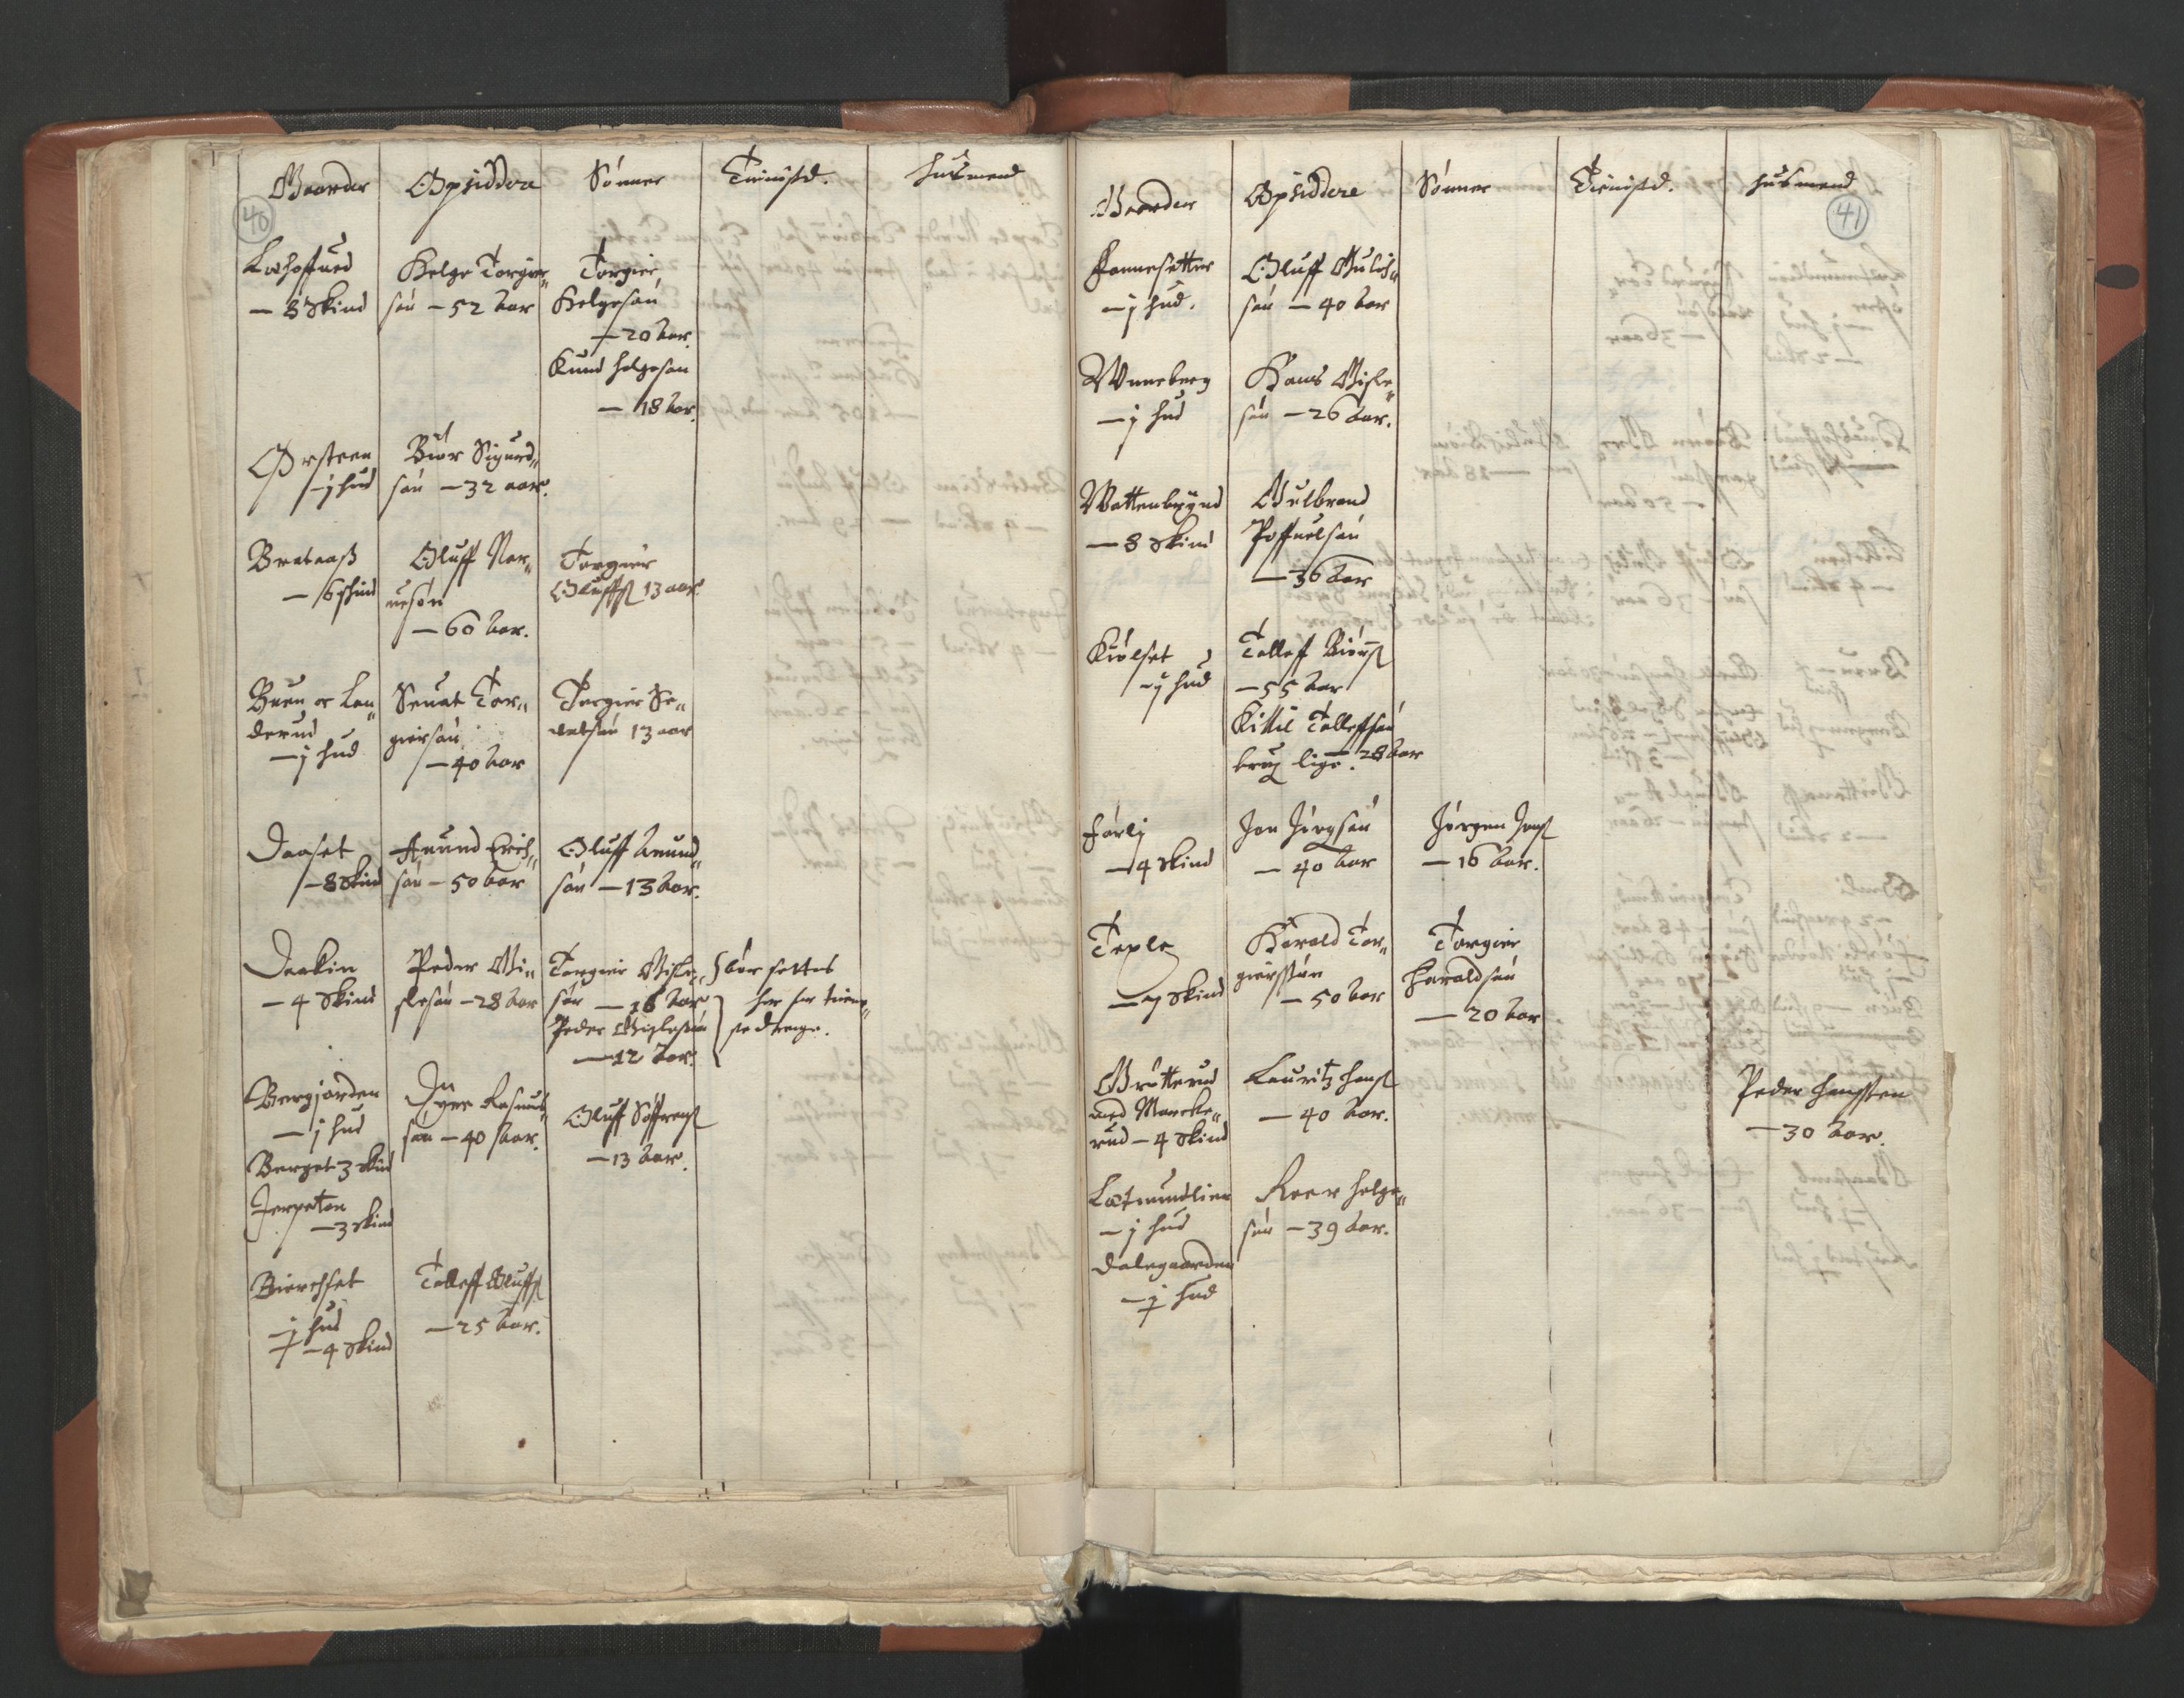 Gaarder Opsiddere Sønner Tienistd. husmend
40
Loehoffued
— 8 Skind
Helge Torgier„
søn — 52 aar
Torgier
Helgesøn
— 20 aar.
Knud helgesøn
— 18 aar.
Orsteen
— j hud
Biør Sigurd„
søn — 32 aar.
Brataaß
— 6 skind
Oluff Nar„
uesøn
— 60 aar.
Torgier
Oluffs. 13 aar.
Buen oc Lan„
derud
— j hud
Seuat Tor„
giersøn
— 40 aar
Torgier Se„
uatsøn 13 aar
Daaset
— 8 Skind
Anund Erich„
søn — 50 aar
Oluff Anund„
søn — 13 aar.
Daakin
— 4 Skind
Peder Gi„
slesøn — 28 aar
Torgier Gisle„
søn — 16 aar
Peder Gislesøn
— 12 aar.
bør settes
her for tieni„
ste drenge.
Bergjorden
— j hud
Berget 3 Skind
Jerpetøn
— 3 Skind
Dyre Rasmus„
søn — 40 aar.
Oluff Søffrens.
— 13 aar.
Bierchset
— j hud
— 4 Skind
Tolleff Oluffs.
— 25 aar.
Gaarder Opsiddere Sønner Tienistd. husmend
41
Fønnesetter
— j hud.
Oluff Gulich„
søn — 40 aar
Wnneberg
— j hud
Hans Gisle„
søn — 26 aar.
Wattenbrynd
— 8 Skind
Gulbrand
Poffuelsøn
— 36 aar
Kiølset
— j hud
Tolleff Biørns.
— 55 aar
Kittil Tolleffsøn
brug lige. 28 aar
Førlj
— 4 Skind
Jon Jørgsøn
— 40 aar
Jørgen Jons.
— 16 aar.
Teple
— 7 Skind
Harald Tor„
gierssøn
— 50 aar
Torgier
Haraldsøn
— 20 aar
Grøtterud
med Marcke„
rud — 4 Skind
Lauritz Hans.
— 40 aar.
Peder Hanssen
— 30 aar.
Lotmundlien
— j hud
Dalegaarden
— j hud
Roar Helge„
søn — 39 aar.